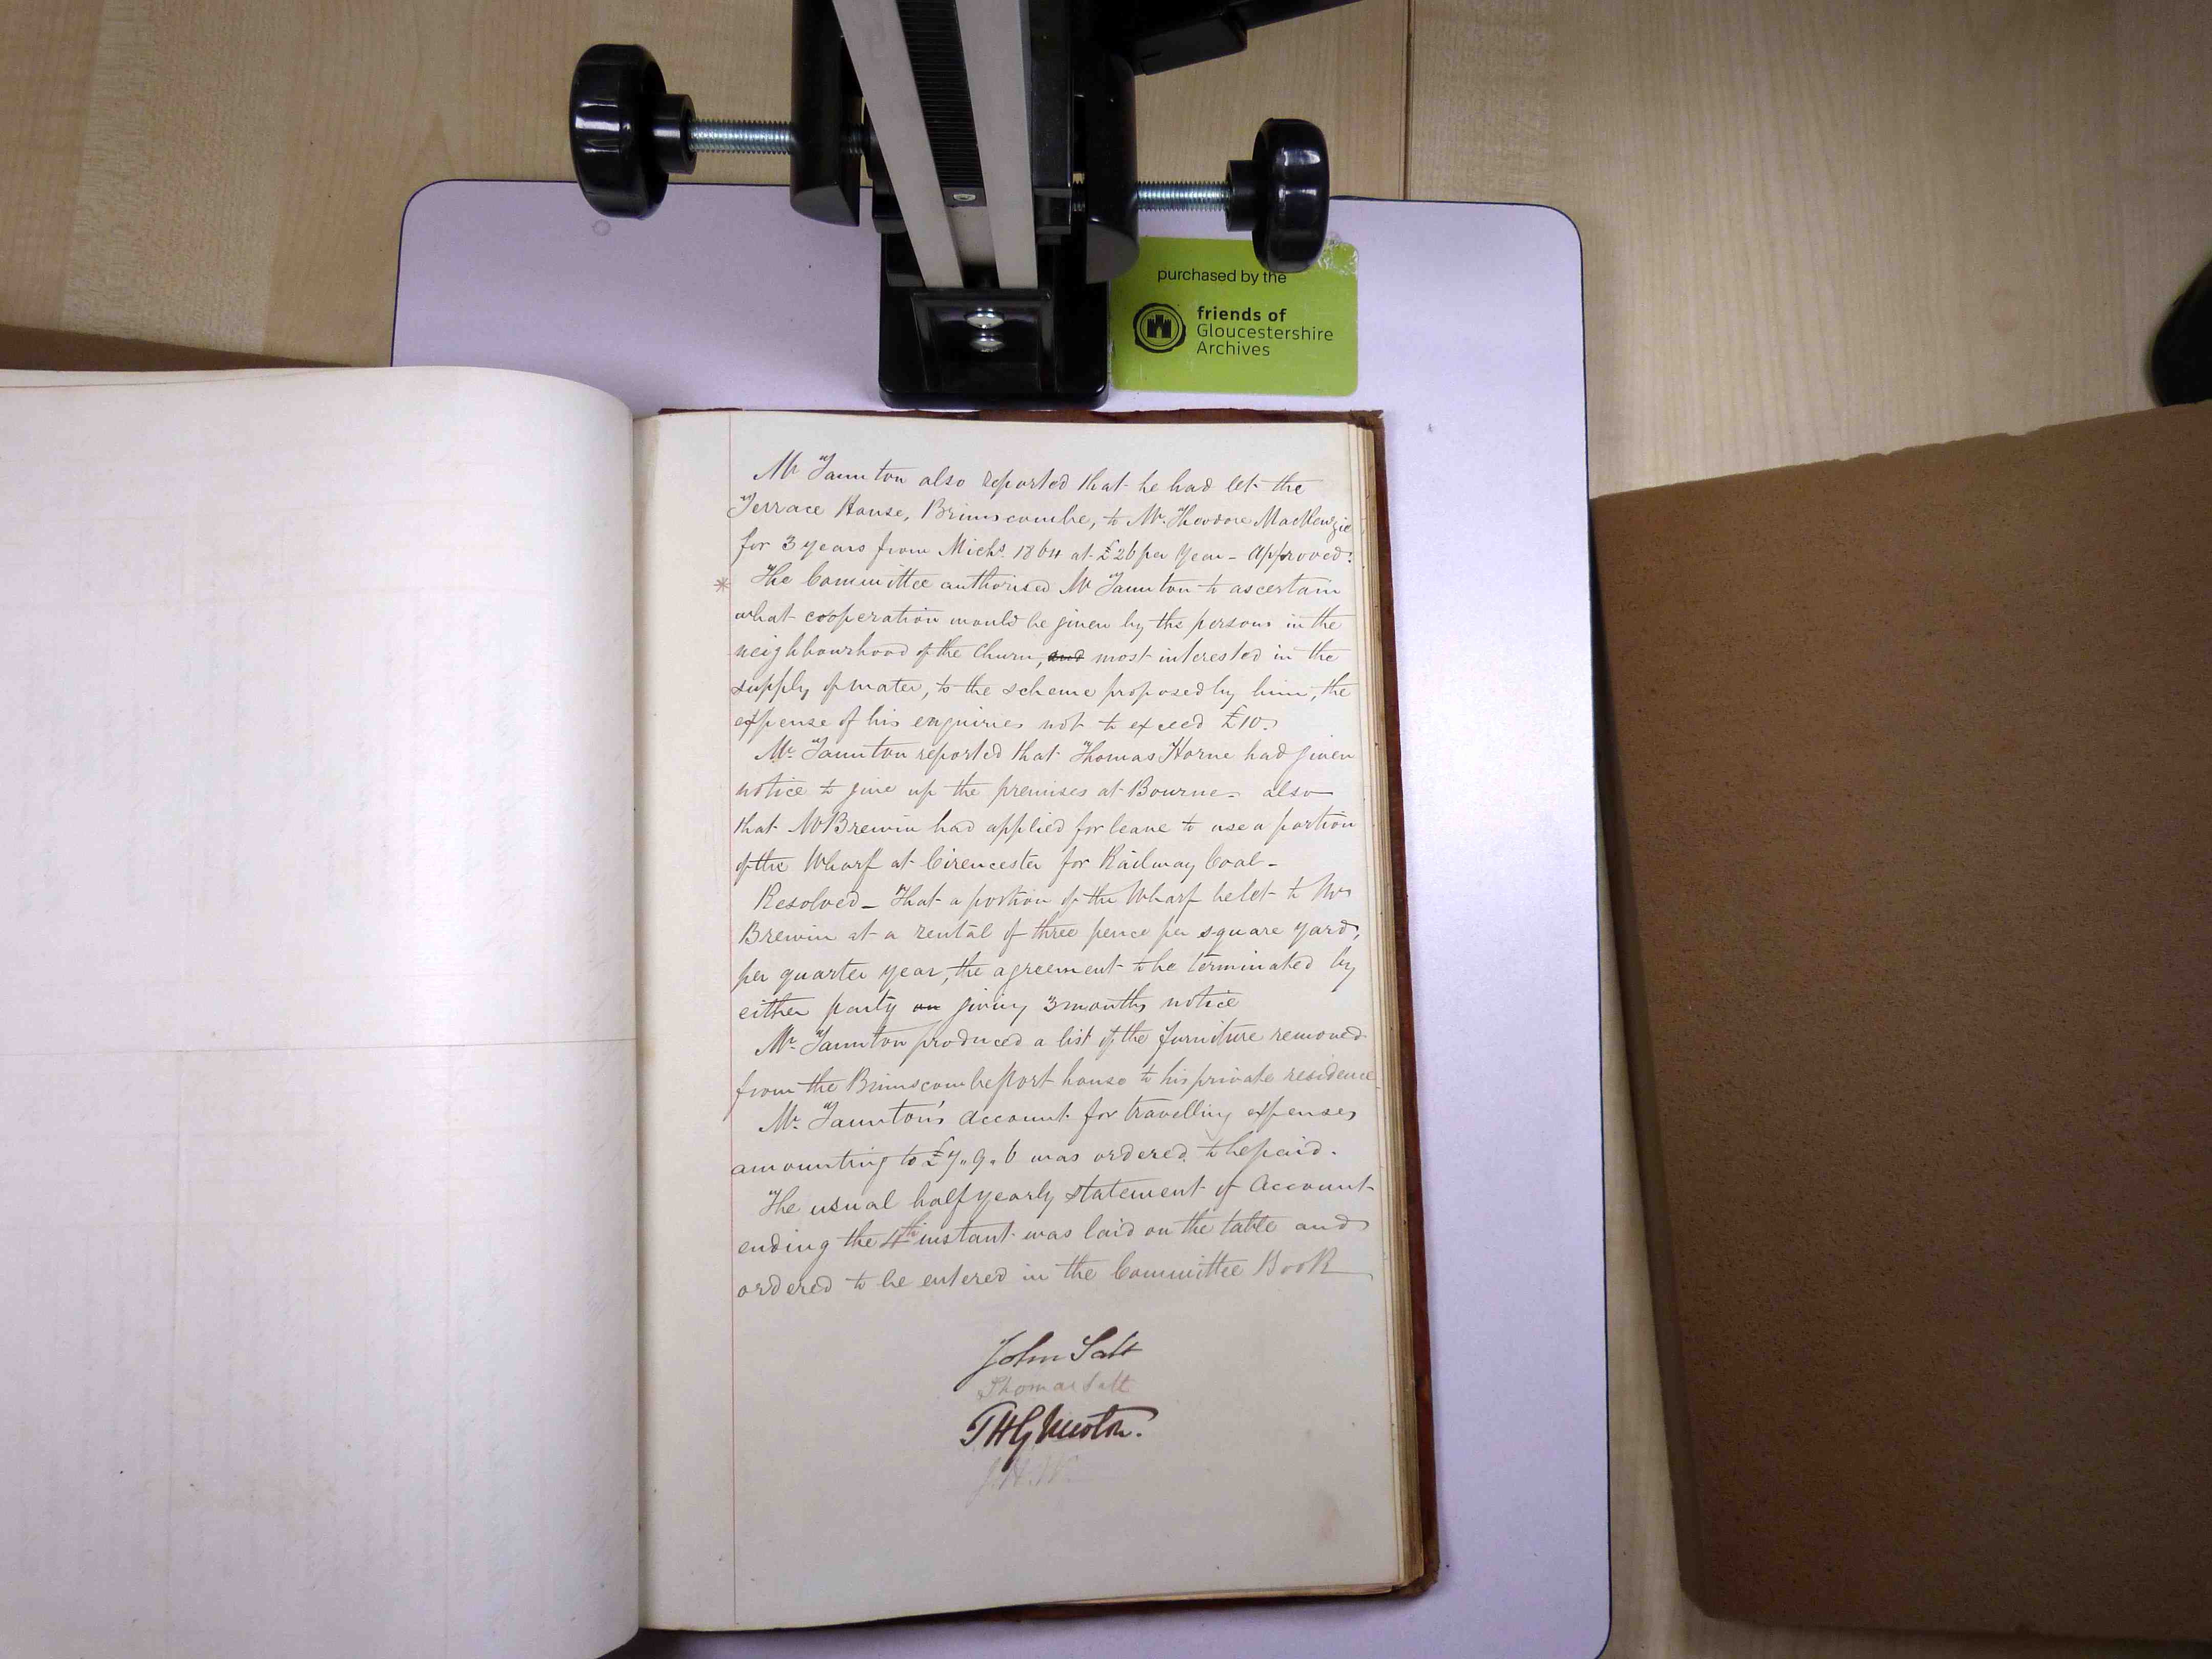 purchased by the
friends of
Gloucestershire
Archives
Mr Taunton also reported that he had let the
Terrace House, Brimscombe, to Mr. Theodore MacKenzie
for 3 years from Michs. 1864 at £26 per Year - Approved.
* The Committee authorised Mr Taunton to ascertain
what cooperation would be given by the persons in the
neighbourhood of the Churn, and most interested in the
supply of water, to the scheme proposed by him, the
expense of his enquiries not to exceed £10.
Mr. Taunton reported that Thomas Horne had given
notice to give up the premises at Bourne - also
that Mr Brewin had applied for leave to use a portion
of the Wharf at Cirencester for Railway Coal -
Resolved - That a portion of the Wharf be let to Mr
Brewin at a rental of three pence per square yard,
per quarter year, the agreement to be terminated by
either party on giving 3 months notice
Mr. Taunton produced a list of the furniture removed
from the Brimscombe Port house to his private residence
Mr. Taunton's Account for travelling expenses
amounting to £7.9.6 was ordered to be paid.
The usual half yearly statement of Account
ending the 4th instant was laid on the table and
ordered to be entered in the Committee Book
John Salt
Thomas Salt
T H G